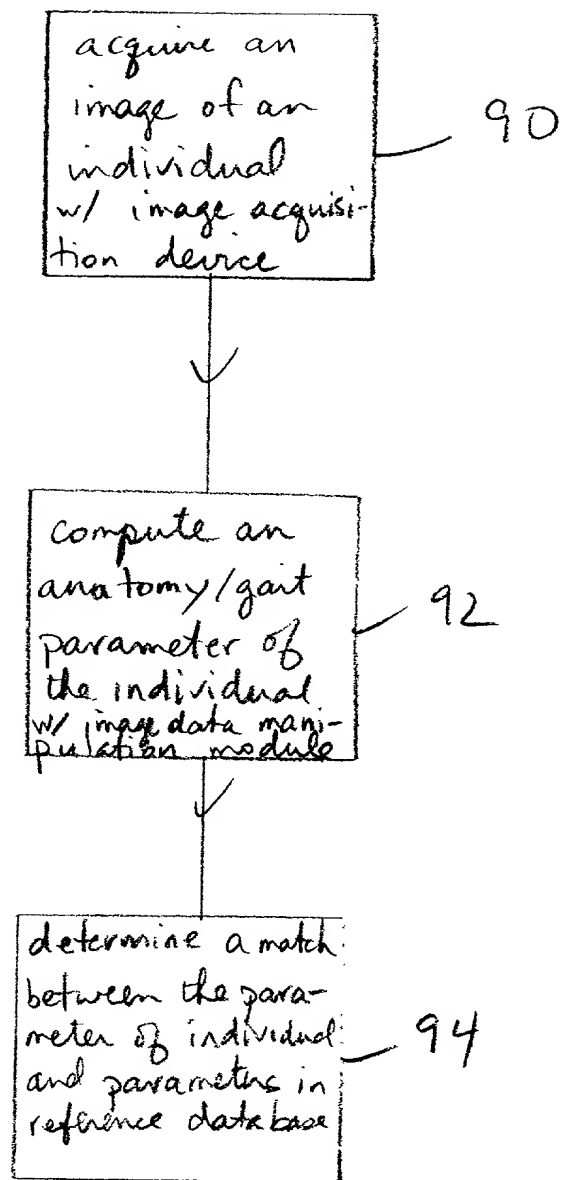 acquire an
image of an
individual
w/ image acquisi-
tion device
90
compute an
anatomy/gait
parameter of
the individual
w/ image data mani-
pulation module
92
determine a match
between the para-
meter of individual
and parameters in
reference database
94